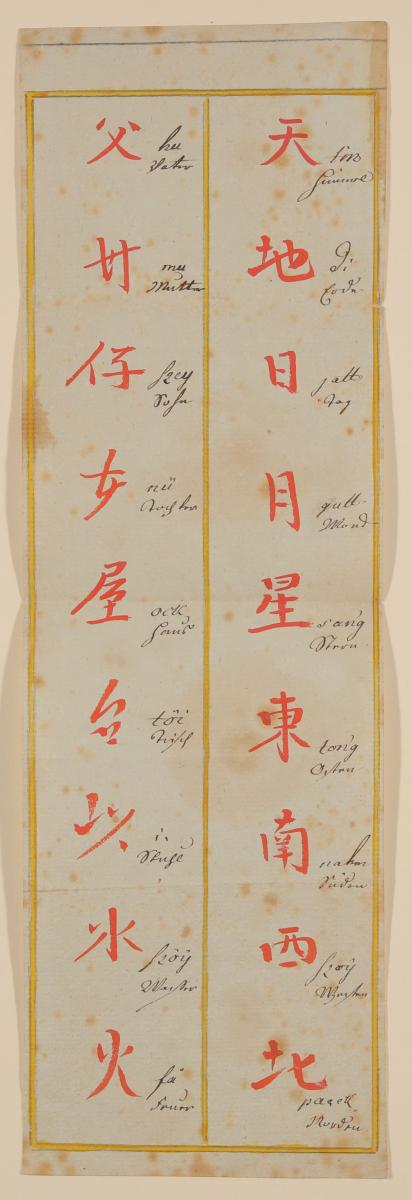 天
tin
Himmel
地
di
Erde
日
jatt
Tag
月
gutt
Mond
星
sang
Stern
東
tong
Osten
南
nahm
Süden
西
Westen
北
paack
Norden
父
hu
Vater
母
mu
Mutter
仔
szey
Sohn
女
nü
Tochter
屋
ock
Haus
台
töi
Tisch
以
i:
Stuhl
水
szöÿ
Wasser
火
fä
Feuer